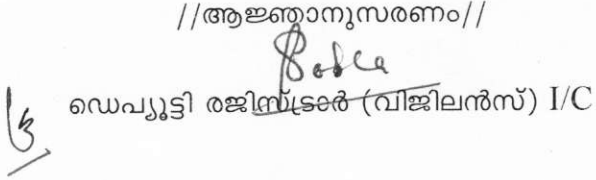 //ആജ്ഞാനുസരണം//
ഡെപ്യൂട്ടി രജിസ്ട്രാർ (വിജിലൻസ്) I/C